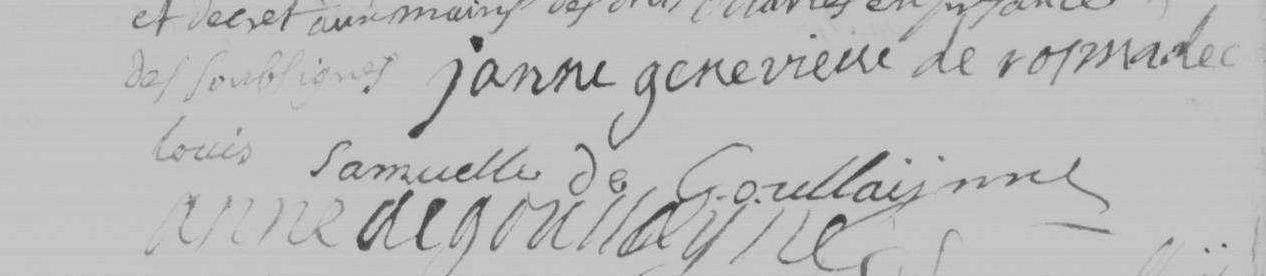 et decret aux mains des
des soubsignes janne genevieue de rosmadec
louis samuelle de Goullaijnne
anne de goullayne